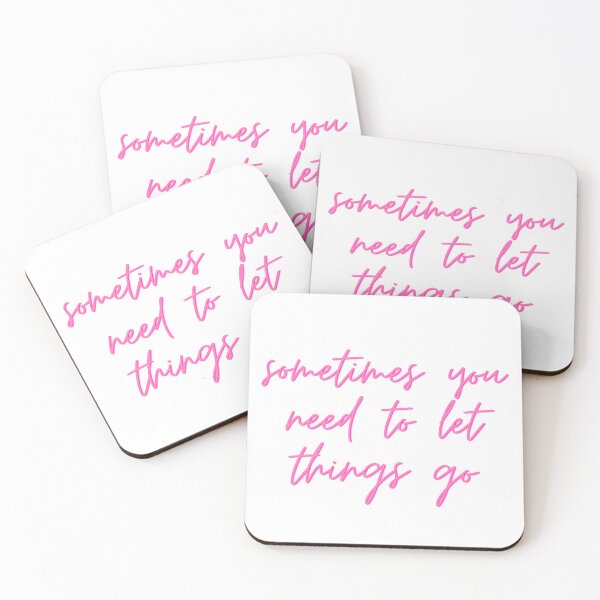 sometimes you
need to let
go
sometimes you
need to let
things go
sometimes you
need to let
things
sometimes you
need to let
things go